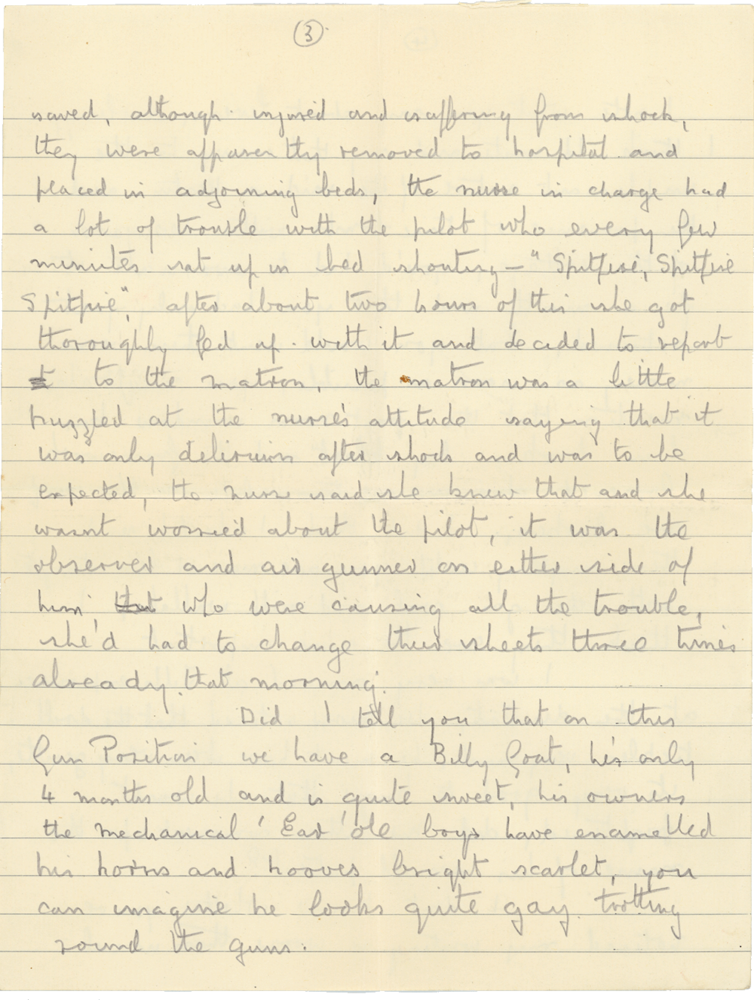 3
saved, although injured and suffering from shock,
they were apparently removed to hospital and
placed in adjoining beds, the nurse in charge had
a lot of trouble with the pilot who every few
minutes sat up in bed shouting – "Spitfire, Spitfire
Spitfire", after about two hours of this she got
thoroughly fed up with it and decided to report
to the matron, the matron was a little
puzzled at the nurse's attitude saying that it
was only delirium after shock and was to be
expected, the nurse said she knew that and she
wasnt worried about the pilot, it was the
observer and air gunner on either side of
him that who were causing all the trouble,
she'd had to change their sheets three times
already that morning.
Did I tell you that on this
Gun Position we have a Billy Goat, he's only
4 months old and is quite sweet, his owners
the mechanical 'Ear 'ole boys have enamelled
his horns and hooves bright scarlet, you
can imagine he looks quite gay trotting
round the guns.